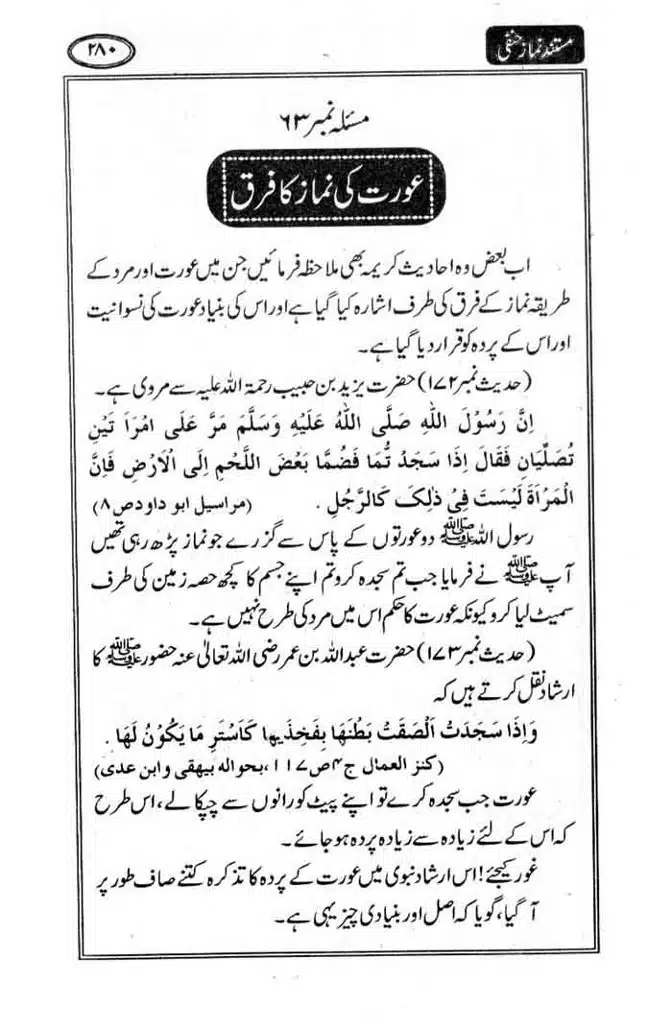 مستند نماز حنفی
۲۸۰
مسئلہ نمبر ۶۳
عورت کی نماز کا فرق
اب بعض وہ احادیث کریمہ بھی ملاحظہ فرمائیں جن میں عورت اور مرد کے
طریقہ نماز کے فرق کی طرف اشارہ کیا گیا ہے اور اس کی بنیاد عورت کی نسوانیت
اور اس کے پردہ کو قرار دیا گیا ہے۔
(حدیث نمبر ۱۷۲) حضرت یزید بن حبیب رحمۃ اللہ علیہ سے مروی ہے۔
اِنَّ رَسُوْلَ اللهِ صَلَّى اللهُ عَلَيْهِ وَسَلَّمَ مَرَّ عَلَى امْرَاَ تَيْنِ
تُصَلِّيَانِ فَقَالَ اِذَا سَجَدْ تُّمَا فَضُمَّا بَعْضَ اللَّحْمِ اِلَى الْاَرْضِ فَاِنَّ
الْمَرْاَةَ لَيْسَتْ فِیْ ذٰلِکَ کَالرَّجُلِ . (مراسیل ابو داود ص ۸)
رسول اللہ ﷺ دو عورتوں کے پاس سے گزرے جو نماز پڑھ رہی تھیں
آپ ﷺ نے فرمایا جب تم سجدہ کرو تم اپنے جسم کا کچھ حصہ زمین کی طرف
سمیٹ لیا کرو کیونکہ عورت کا حکم اس میں مرد کی طرح نہیں ہے۔
(حدیث نمبر ۱۷۳) حضرت عبداللہ بن عمر رضی اللہ تعالیٰ عنہ حضور ﷺ کا
ارشاد نقل کرتے ہیں کہ
وَاِذَا سَجَدَتْ اَلْصَقَتْ بَطْنَهَا بِفَخِذَيها كَاَسْتَرِ مَا يَكُوْنُ لَهَا .
(کنز العمال ج ۴ ص ۱۱۷، بحواله بیهقی وابن عدی)
عورت جب سجدہ کرے تو اپنے پیٹ کو رانوں سے چپکا لے، اس طرح
کہ اس کے لئے زیادہ سے زیادہ پردہ ہو جائے۔
غور کیجئے! اس ارشاد نبوی میں عورت کے پردہ کا تذکرہ کتنے صاف طور پر
آ گیا، گویا کہ اصل اور بنیادی چیز یہی ہے۔